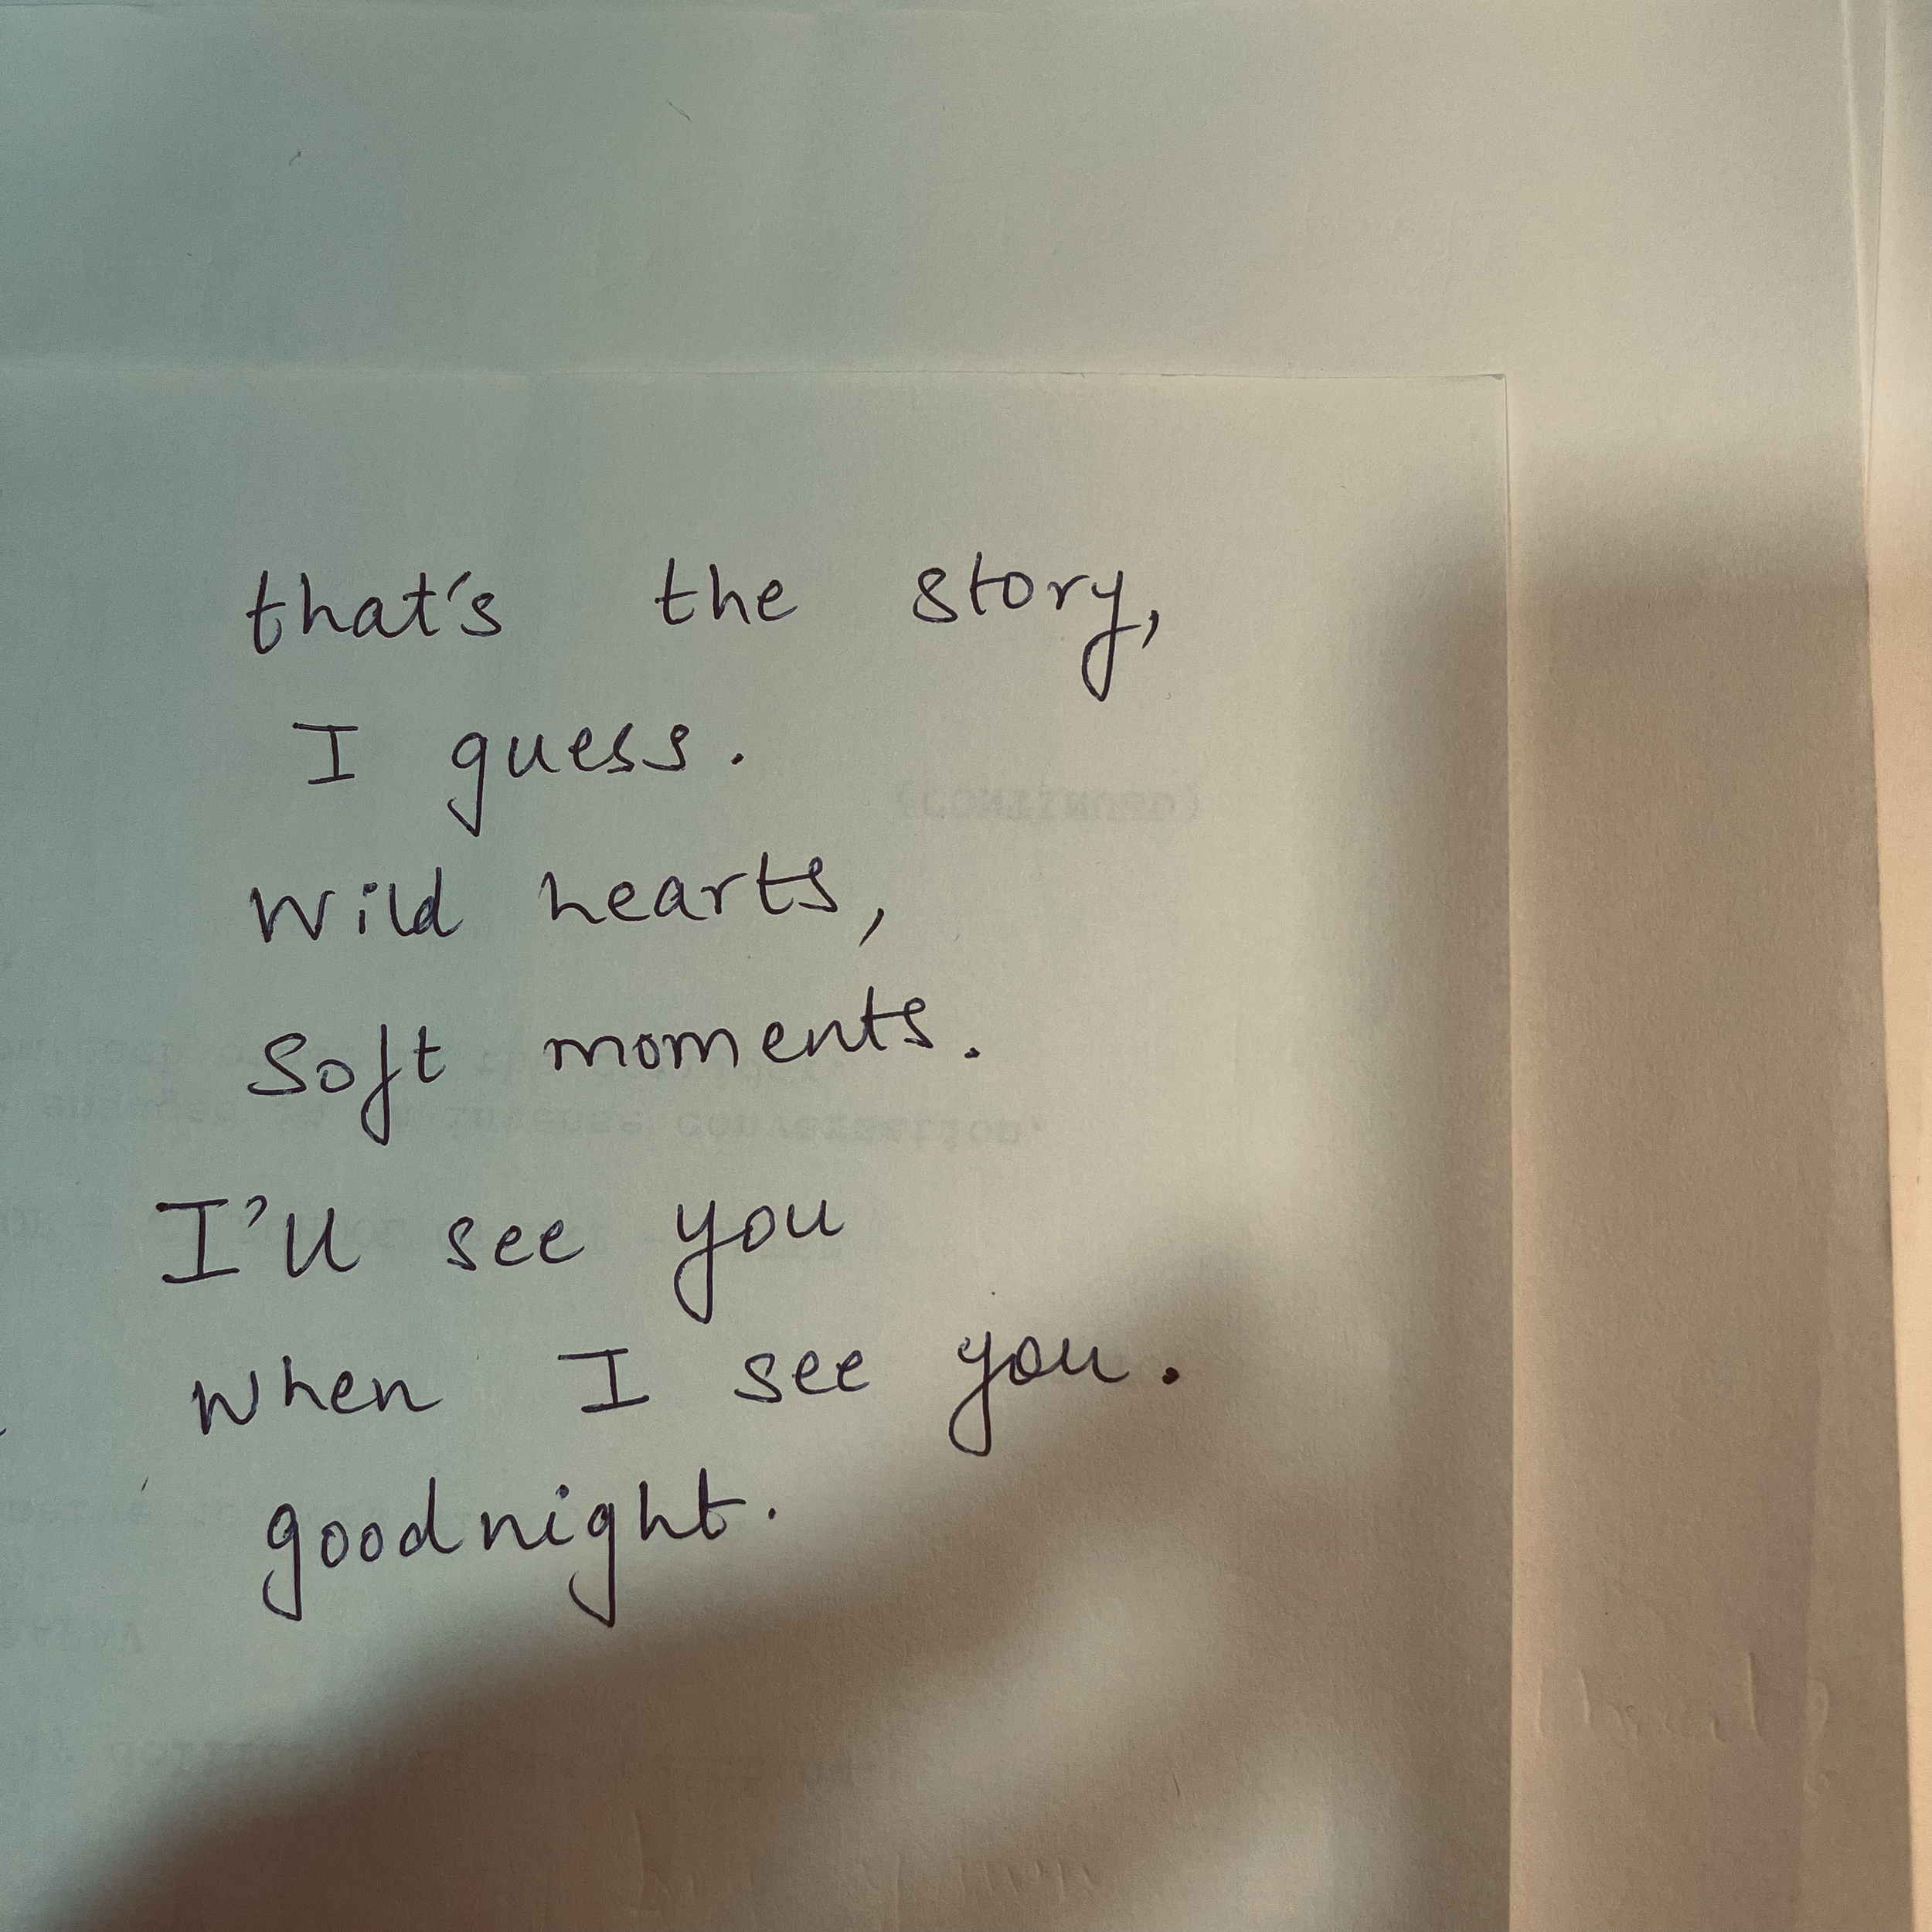 that's the story,
I guess.
Wild hearts,
Soft moments.
I'll see you
When I see you.
goodnight.
(CONTINUED)
intense conversation.